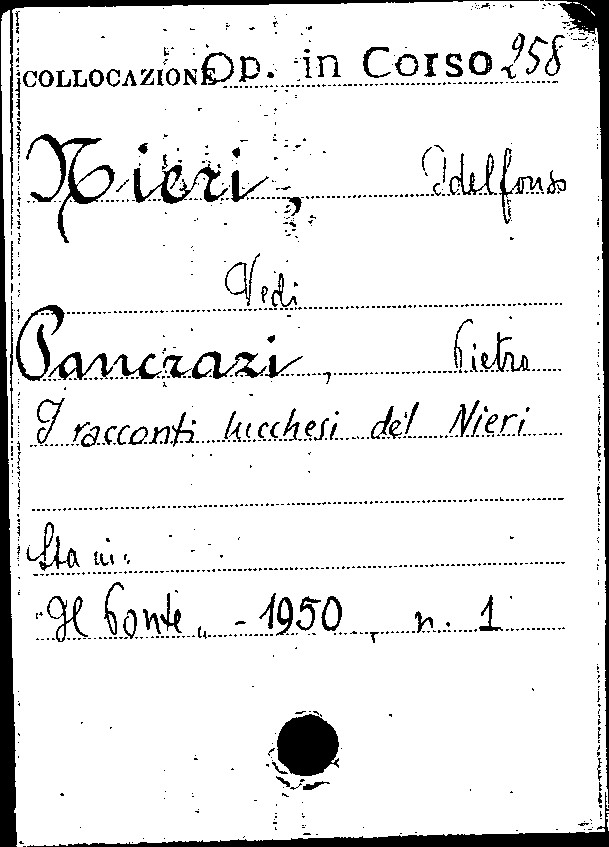 COLLOCAZIONE Op. in Corso 258
Nieri, Idelfonso
Vedi
Pancrazi, Pietro
I racconti lucchesi del Nieri
Sta in:
"Il Ponte" - 1950, n. 1